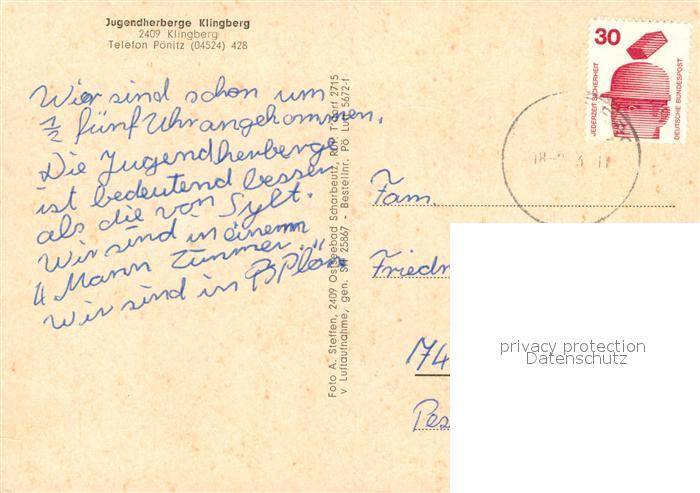 Jugendherberge Klingberg
2409 Klingberg
Telefon Pönitz (04524) 428
Wir sind schon um
1/2 fünf Uhr angekommen.
Die Jugendherberge
ist bedeutend besser
als die von Sylt.
Wir sind in einem
4 Mann Zimmer.
Wir sind in Plön
Foto A. Steffen, 2409 Ostseebad Scharbeutz, Ruf: 2715
v Luftaufnahme, gen. SH 25867 - Bestellnr. Pö Luft 5672-f
30
JEDERZEIT SICHERHEIT
DEUTSCHE BUNDESPOST
Fam.
Friedr
74
privacy protection
Datenschutz